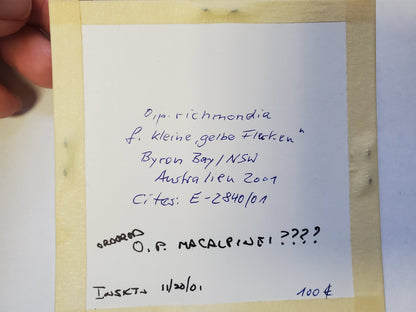 O.p. richmondia
f. kleine „gelbe Flecken"
Byron Bay/NSW
Australien 2001
Cites: E-2840/01
ORDERED O.P. MACALPINEI ????
INSKT 11/20/01
100 €